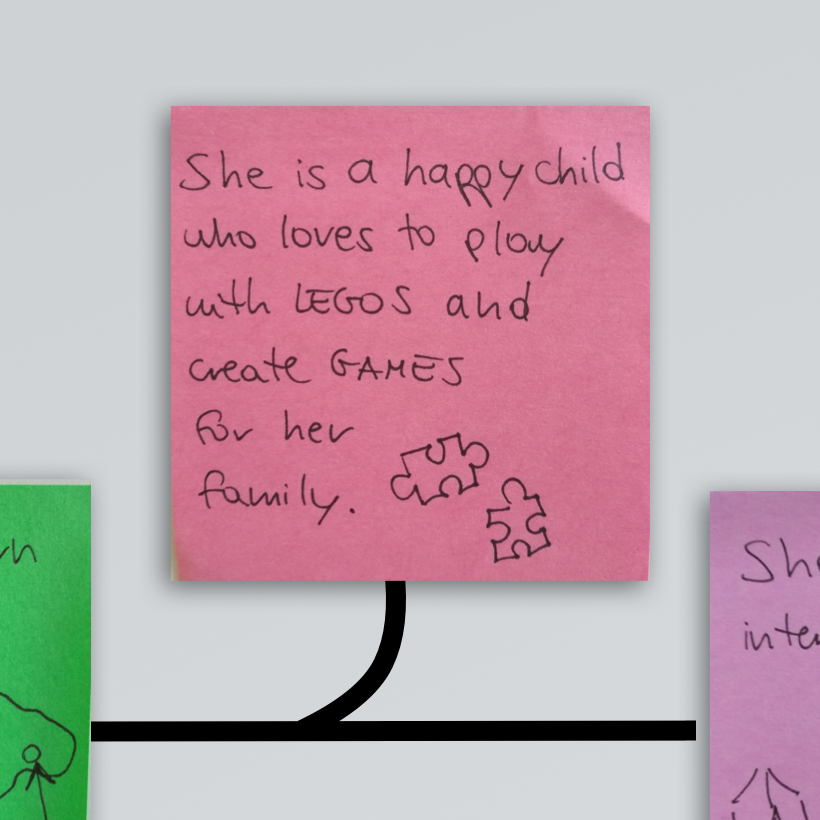 She is a happy child
who loves to play
with LEGOS and
create GAMES
for her
family.
She